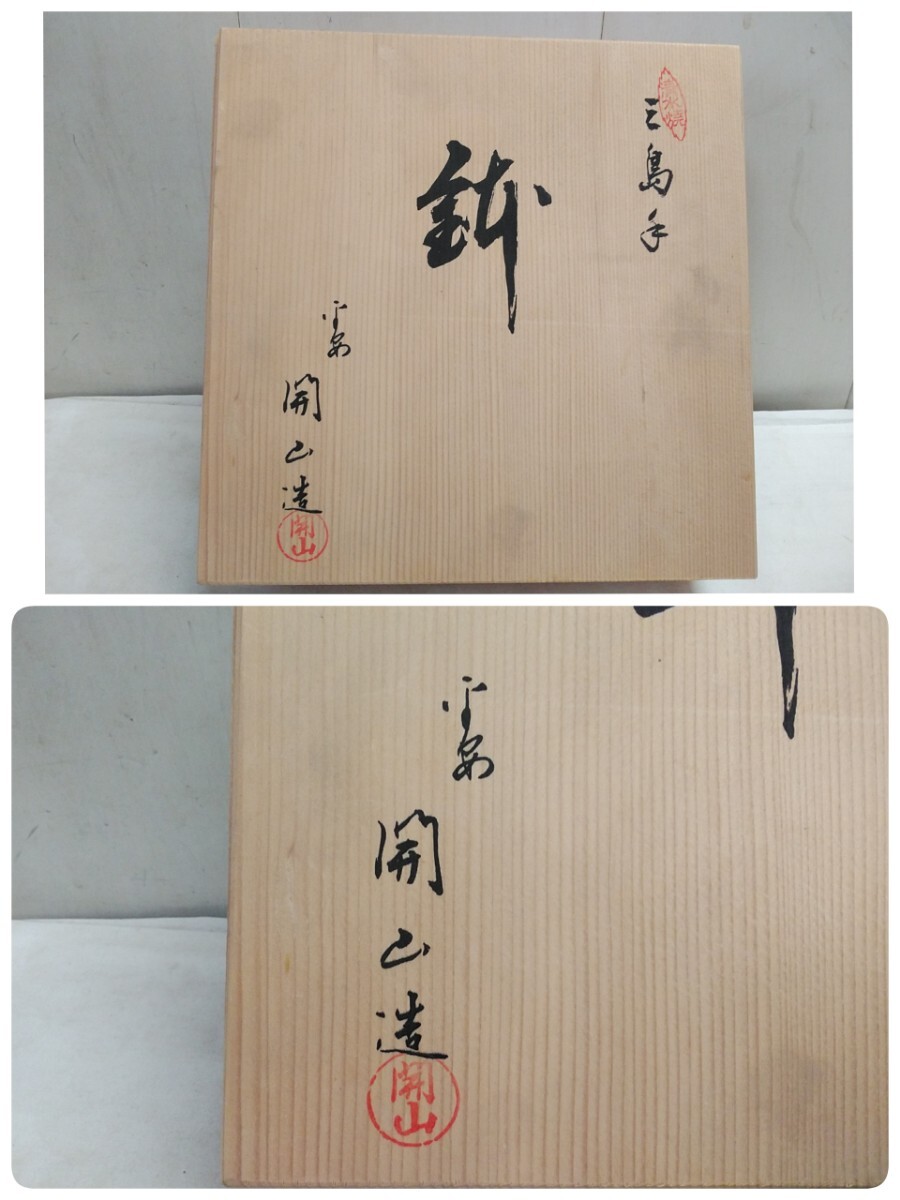 清水焼
三島手
鉢
平安
開山造
開山
平安
開山造
開山